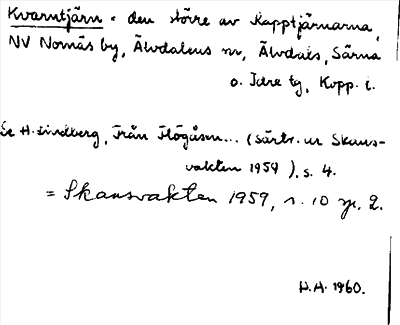 Kvarntjärn = den större av Kapptjärnarna,
NV Nornäs by, Älvdalens sn, Älvdals, Särna
o. Idre tg, Kopp. l.
Se H. Lindberg, Från Högåsen... (särtr. ur Skans-
vakten 1959), s. 4.
= Skansvakten 1959, s. 10 sp. 2.
H.A. 1960.